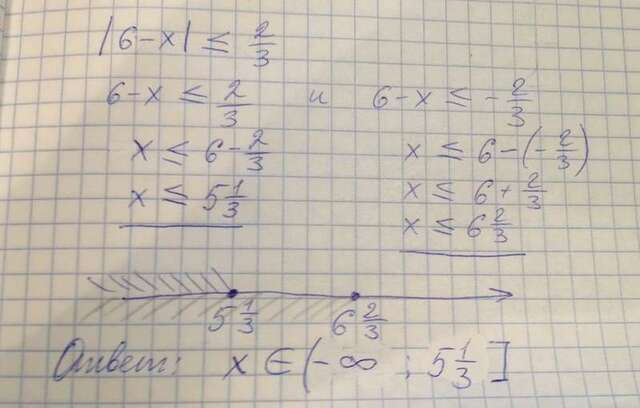 |6-x| ≤ 2/3
6-x ≤ 2/3 и 6-x ≤ -2/3
x ≤ 6-2/3 x ≤ 6-(-2/3)
x ≤ 5 1/3 x ≤ 6+2/3
x ≤ 6 2/3
5 1/3 6 2/3
Ответ: x ∈ (-∞ ; 5 1/3]